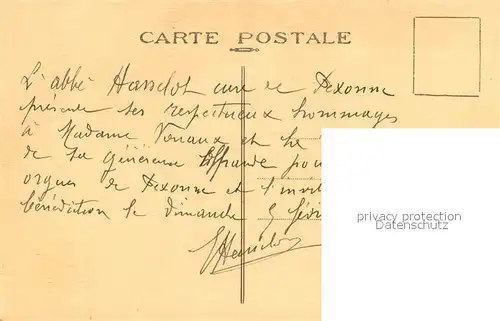 CARTE POSTALE
L'abbé Hasselot curé de Pexonne
présente ses respectueux hommages
à Madame et
de sa généreuse offrande pou
orgues de Pexonne et l'invit
bénédiction le dimanche 5 févri
privacy protection
Datenschutz